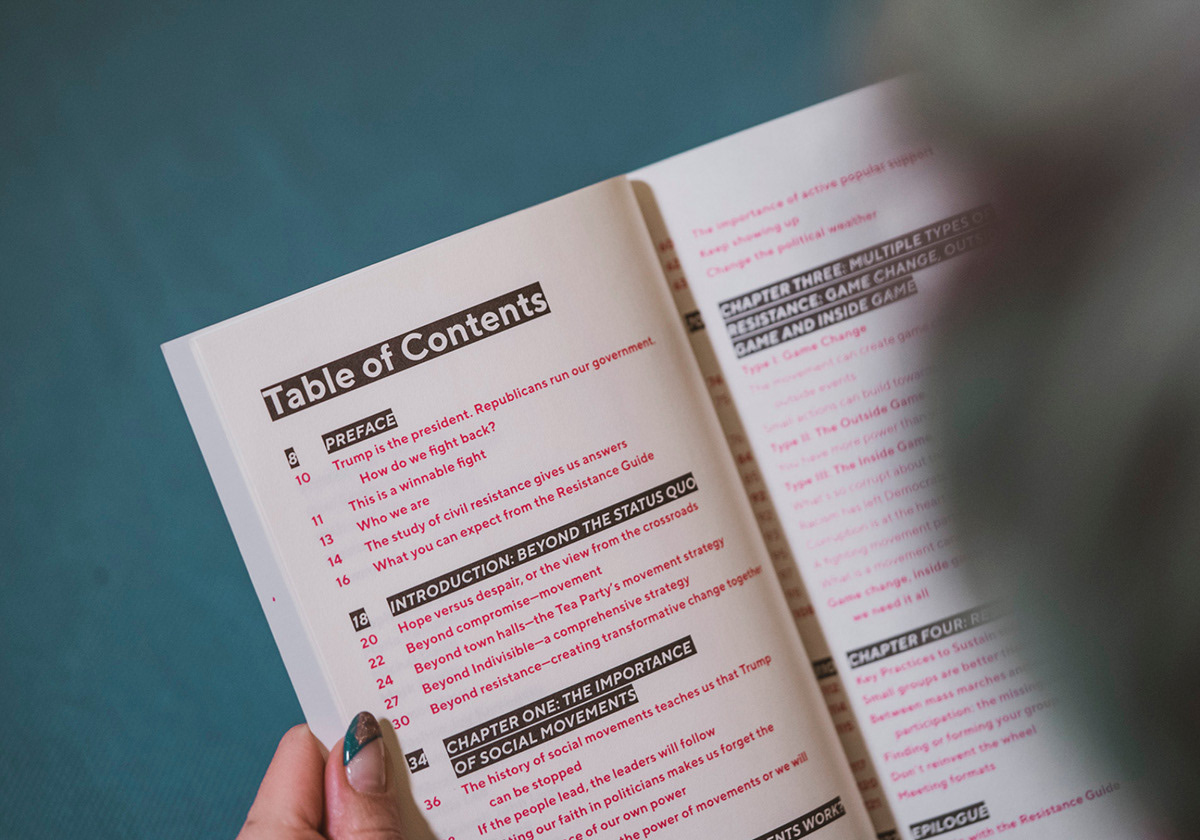 Table of Contents
8 PREFACE
10 Trump is the president. Republicans run our government.
How do we fight back?
11 This is a winnable fight
13 Who we are
14 The study of civil resistance gives us answers
16 What you can expect from the Resistance Guide
18 INTRODUCTION: BEYOND THE STATUS QUO
20 Hope versus despair, or the view from the crossroads
22 Beyond compromise—movement
24 Beyond town halls—the Tea Party's movement strategy
27 Beyond Indivisible—a comprehensive strategy
30 Beyond resistance—creating transformative change together
34 CHAPTER ONE: THE IMPORTANCE
OF SOCIAL MOVEMENTS
36 The history of social movements teaches us that Trump
can be stopped
If the people lead, the leaders will follow
our faith in politicians makes us forget the
of our own power
the power of movements or we will
WORK?
The importance of active popular support
Keep showing up
Change the political weather
CHAPTER THREE: MULTIPLE TYPES OF
RESISTANCE: GAME CHANGE,
GAME AND INSIDE GAME
Type I: Game Change
The movement can create game
outside events
Small actions can build
Type II: The Outside Game
You have more power than
Type III: The Inside Game
What's so corrupt about
Racism has left
Corruption is at the heart
A fighting movement
What is a movement
Game change, inside
we need it all
CHAPTER FOUR:
Key Practices to Sustain
Small groups are better
Between mass marches and
participation: the missing
Finding or forming your
Don't reinvent the wheel
Meeting formats
EPILOGUE
with the Resistance Guide